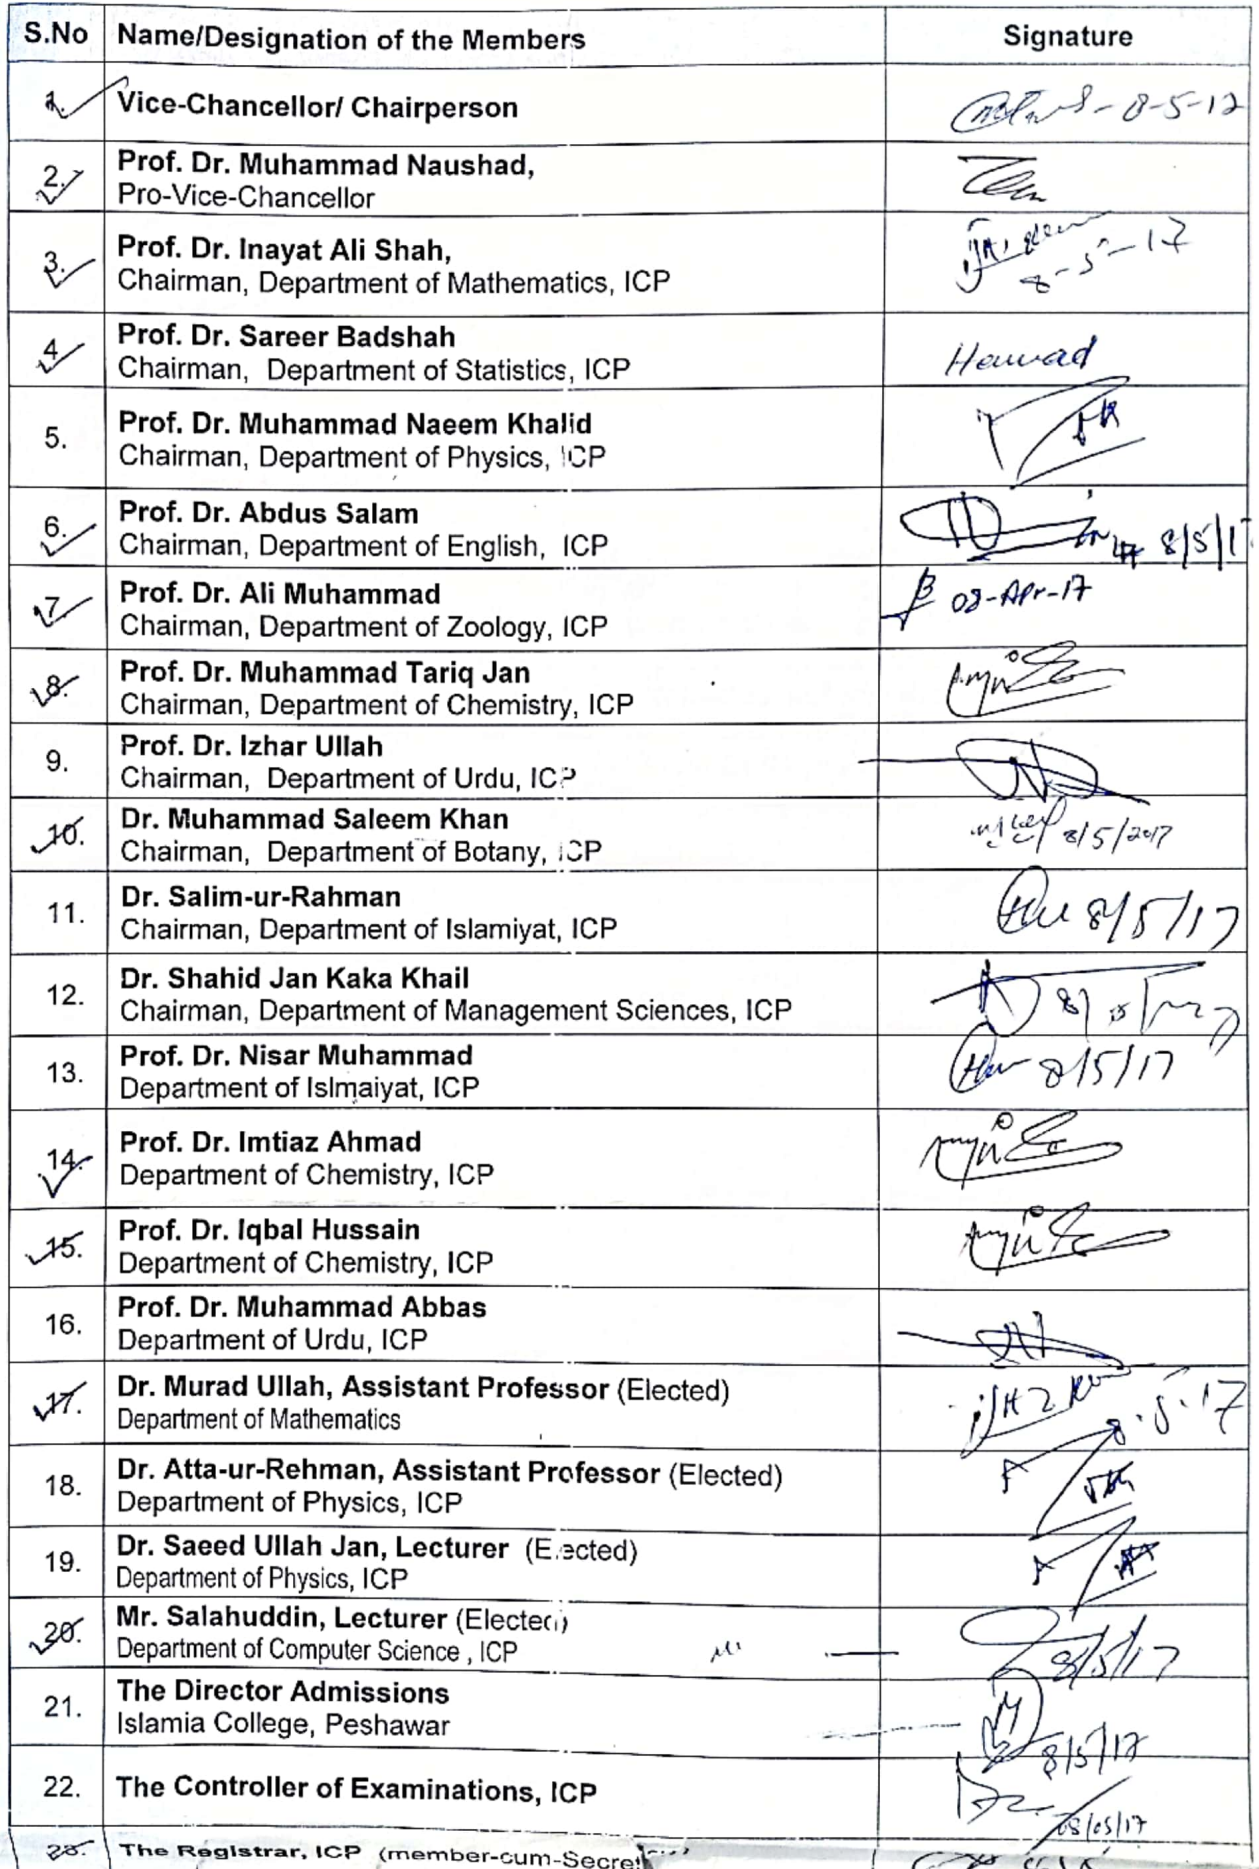 S.No Name/Designation of the Members Signature
1. Vice-Chancellor/ Chairperson 8-5-17
2. Prof. Dr. Muhammad Naushad,
Pro-Vice-Chancellor
3. Prof. Dr. Inayat Ali Shah,
Chairman, Department of Mathematics, ICP 8-5-17
4. Prof. Dr. Sareer Badshah
Chairman, Department of Statistics, ICP
5. Prof. Dr. Muhammad Naeem Khalid
Chairman, Department of Physics, ICP
6. Prof. Dr. Abdus Salam
Chairman, Department of English, ICP 8/5/17
7. Prof. Dr. Ali Muhammad 08-Apr-17
Chairman, Department of Zoology, ICP
8. Prof. Dr. Muhammad Tariq Jan
Chairman, Department of Chemistry, ICP
9. Prof. Dr. Izhar Ullah
Chairman, Department of Urdu, ICP
10. Dr. Muhammad Saleem Khan 8/5/2017
Chairman, Department of Botany, ICP
11. Dr. Salim-ur-Rahman 8/5/17
Chairman, Department of Islamiyat, ICP
12. Dr. Shahid Jan Kaka Khail
Chairman, Department of Management Sciences, ICP
13. Prof. Dr. Nisar Muhammad 8/5/17
Department of Islmaiyat, ICP
14. Prof. Dr. Imtiaz Ahmad
Department of Chemistry, ICP
15. Prof. Dr. Iqbal Hussain
Department of Chemistry, ICP
16. Prof. Dr. Muhammad Abbas
Department of Urdu, ICP
17. Dr. Murad Ullah, Assistant Professor (Elected) 8.5.17
Department of Mathematics
18. Dr. Atta-ur-Rehman, Assistant Professor (Elected)
Department of Physics, ICP
19. Dr. Saeed Ullah Jan, Lecturer (Elected)
Department of Physics, ICP
20. Mr. Salahuddin, Lecturer (Elected)
Department of Computer Science , ICP 8/5/17
21. The Director Admissions
Islamia College, Peshawar 8/5/17
22. The Controller of Examinations, ICP 08/05/17
The Registrar, ICP (member-cum-Secret